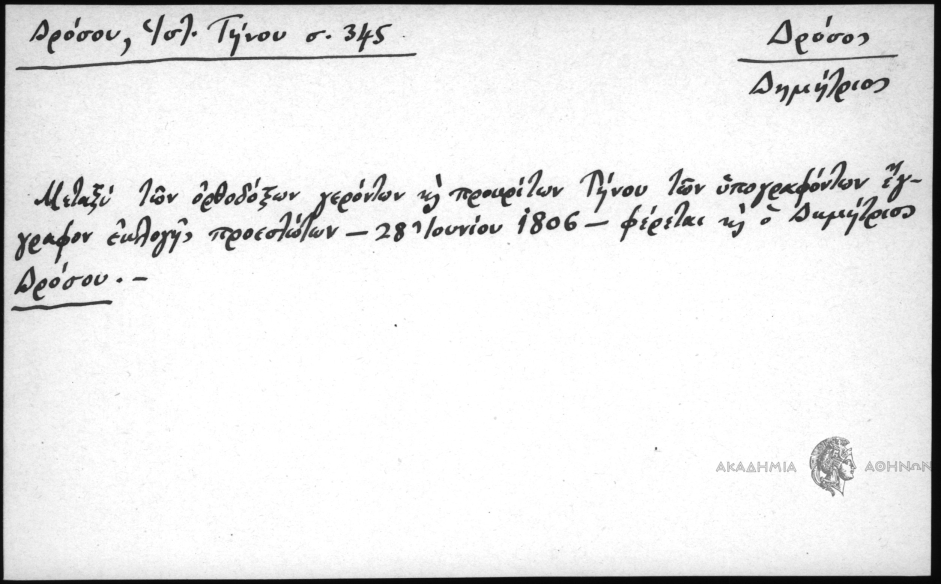 Δρόσου, Ἱστ. Τήνου σ. 345
Δρόσος
Δημήτριος
Μεταξὺ τῶν ὀρθοδόξων γερόντων κ̀ προκρίτων Τήνου τῶν ὑπογραφόντων ἔγ-
γραφον ἐκλογῆς προεστώτων — 28 Ἰουνίου 1806 — φέρεται κ̀ ὁ Δημήτριος
Δρόσου. —
ΑΚΑΔΗΜΙΑ ΑΘΗΝΩΝ